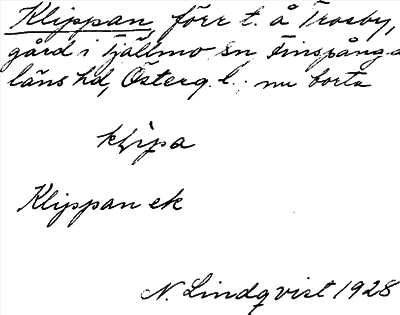 Klippan, förr t. å Trosby,
gård i Tjällmo sn Finspånga
läns hd, Österg. l.; nu borta
klìpa
Klippan ek
N. Lindqvist 1928